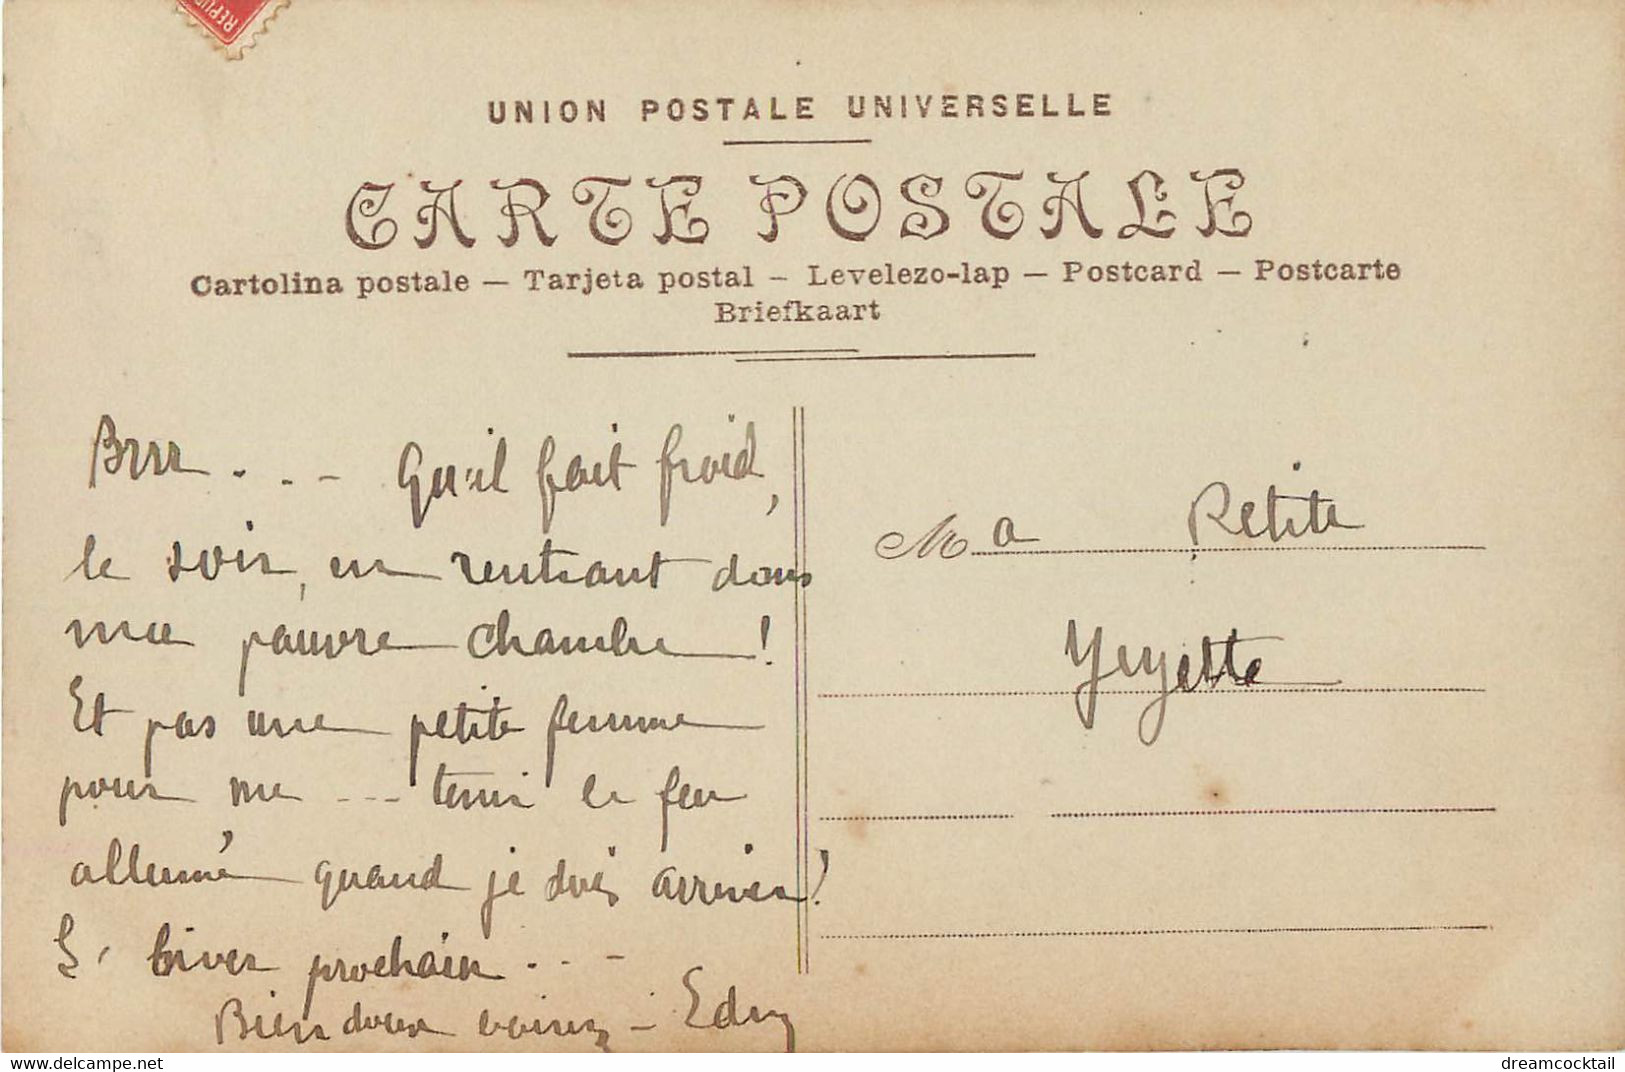 REPU
UNION POSTALE UNIVERSELLE
CARTE POSTALE
Cartolina postale — Tarjeta postal — Levelezo-lap — Postcard — Postcarte
Briefkaart
Brrr . . . - Qu'il fait froid,
le soir, en rentrant dans
ma pauvre chambre !
Et pas une petite femme
pour me --- tenir le feu
allumé quand je dois arriver !
L' hiver prochain . . . -
Bien doux -
Ma Petite
Yeyette
dreamcocktail